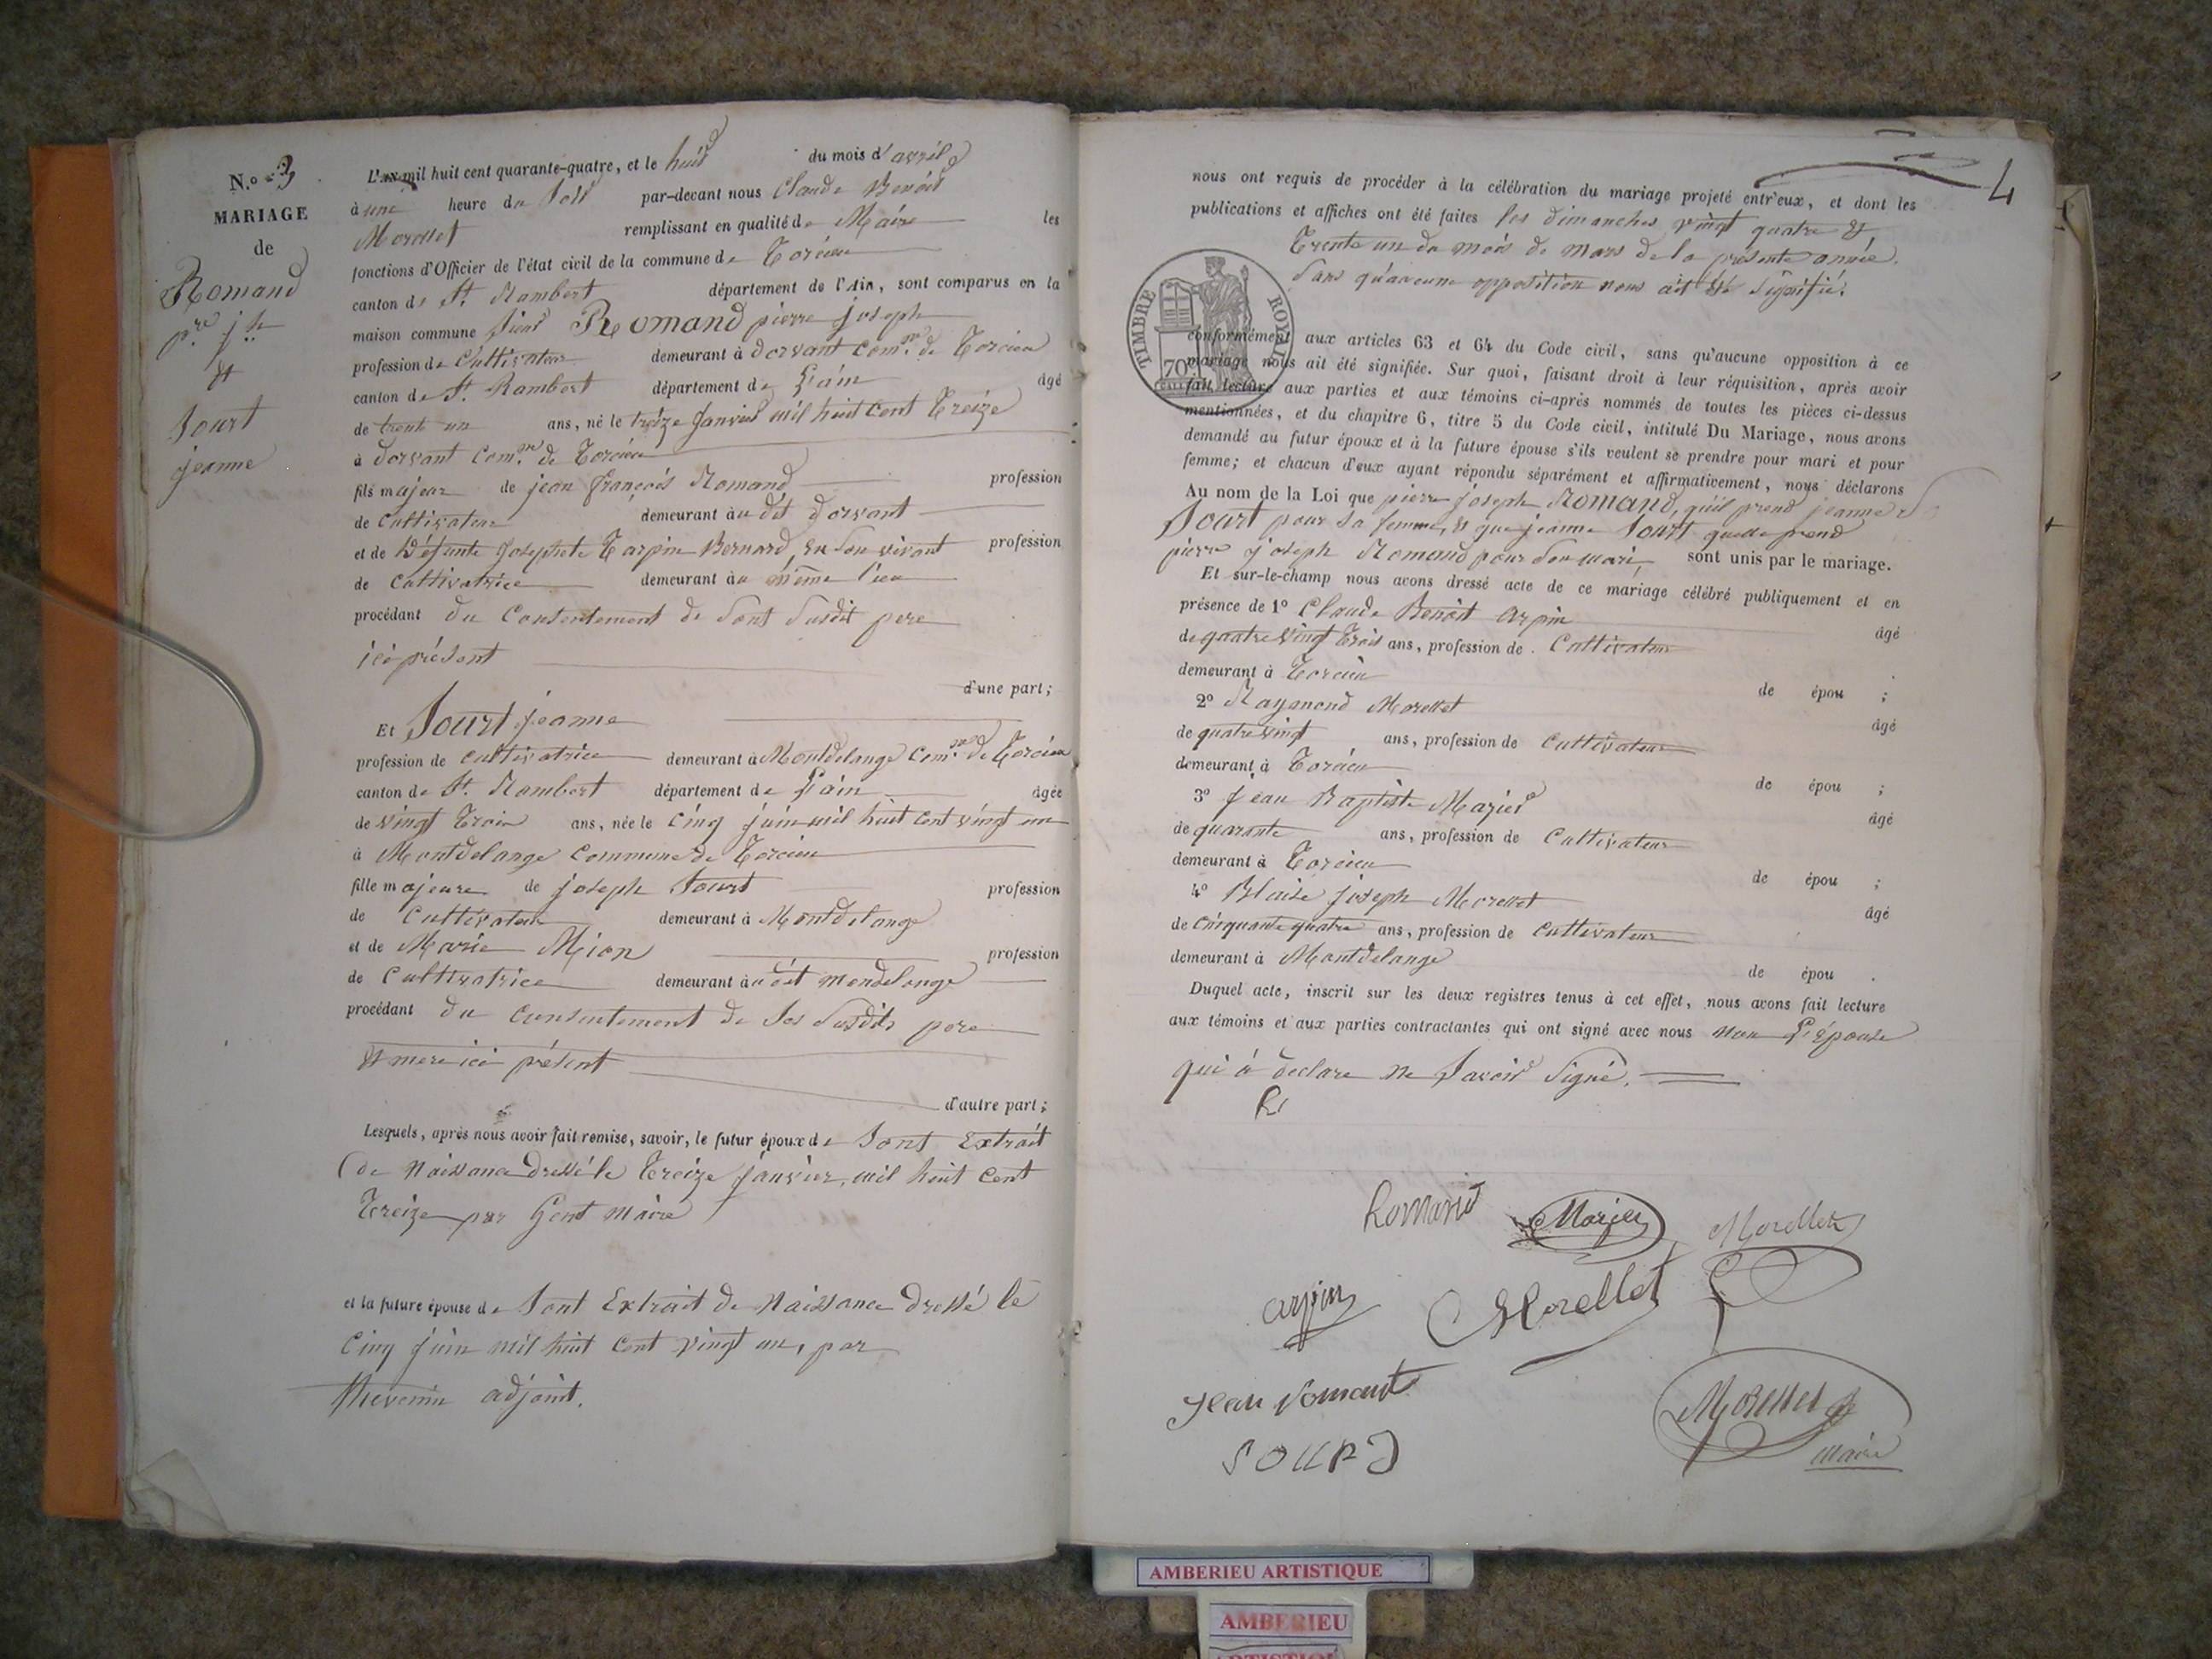 N.o 3
MARIAGE
de
Romand
p.re j.h
et
Sourt
jeanne
L'AN mil huit cent quarante-quatre, et le huit du mois d'avril
à une heure du Soir par-devant nous Claude Benoit
Morellet remplissant en qualité de Maire les
fonctions d'Officier de l'état civil de la commune de Torcieu
canton de St. Rambert département de l'Ain, sont comparus en la
maison commune Sieur Romand pierre joseph
profession de Cultivateur demeurant à dorvant Com.ne de Torcieu
canton de St. Rambert département de L'ain âgé
de trente un ans, né le treize Janvier mil huit cent Treize
à dorvant Com.ne de Torcieu
fils majeur de jean françois Romand profession
de Cultivateur demeurant au dit dorvant
et de Défunte Josephete Tarpin Bernard, en Son vivant profession
de Cultivatrice demeurant au même lieu
procédant du Consentement de Sont Susdit pere
ici présent
d'une part;
Et Sourt jeanne
profession de cultivatrice demeurant à Montdelange Com.ne de Torcieu
canton de St. Rambert département de L'ain âgée
de vingt Trois ans, née le Cinq juin mil huit Cent vingt un
à Montdelange Commune de Torcieu
fille majeure de joseph Sourt profession
de Cultivateur demeurant à Montdelange
et de Marie Mion profession
de Cultivatrice demeurant au dit mondelange
procédant du Consentement de Ses Susdits pere
et mere ici présent
d'autre part;
Lesquels, après nous avoir fait remise, savoir, le futur époux de Sont Extrait
de Naissance dressé le Treize Janvier, mil huit Cent
Treize par Gent Maire
et la future épouse de Sont Extrait de Naissance dressé le
Cinq juin mil huit Cent vingt un, par
Thevenin adjoint.
4
nous ont requis de procéder à la célébration du mariage projeté entr'eux, et dont les
publications et affiches ont été faites les dimanches vingt quatre &
Trente un du mois de mars de la présente année.
Sans qu'aucune opposition nous ait été Signifié.
TIMBRE ROYAL
70c
conformément aux articles 63 et 64 du Code civil, sans qu'aucune opposition à ce
mariage nous ait été signifiée. Sur quoi, faisant droit à leur réquisition, après avoir
fait lecture aux parties et aux témoins ci-après nommés de toutes les pièces ci-dessus
mentionnées, et du chapitre 6, titre 5 du Code civil, intitulé Du Mariage, nous avons
demandé au futur époux et à la future épouse s'ils veulent se prendre pour mari et pour
femme; et chacun d'eux ayant répondu séparément et affirmativement, nous déclarons
Au nom de la Loi que pierre joseph Romand, qu'il prend jeanne
Sourt pour Sa femme, & que jeanne Sourt quelle prend
pierre joseph Romand pour Son mari, sont unis par le mariage.
Et sur-le-champ nous avons dressé acte de ce mariage célébré publiquement et en
présence de 1o Claude Benoit Arpin âgé
de quatre vingt Trois ans, profession de Cultivateur
demeurant à Torcieu de épou ;
2o Raymond Morellet âgé
de quatre vingt ans, profession de Cultivateur
demeurant à Torcieu de épou ;
3o Jean Baptiste Mazier âgé
de quarante ans, profession de Cultivateur
demeurant à Torcieu de épou ;
4o Blaise joseph Morellet âgé
de Cinquante quatre ans, profession de Cultivateur
demeurant à Montdelange de épou .
Duquel acte, inscrit sur les deux registres tenus à cet effet, nous avons fait lecture
aux témoins et aux parties contractantes qui ont signé avec nous non L'épouse
qui à declare ne Savoir Signé.
Romand Mazier Morellet
arpin Morellet
Jean Romant
SOURD
Morellet
maire
AMBERIEU ARTISTIQUE
AMBERIEU
ARTISTIQUE